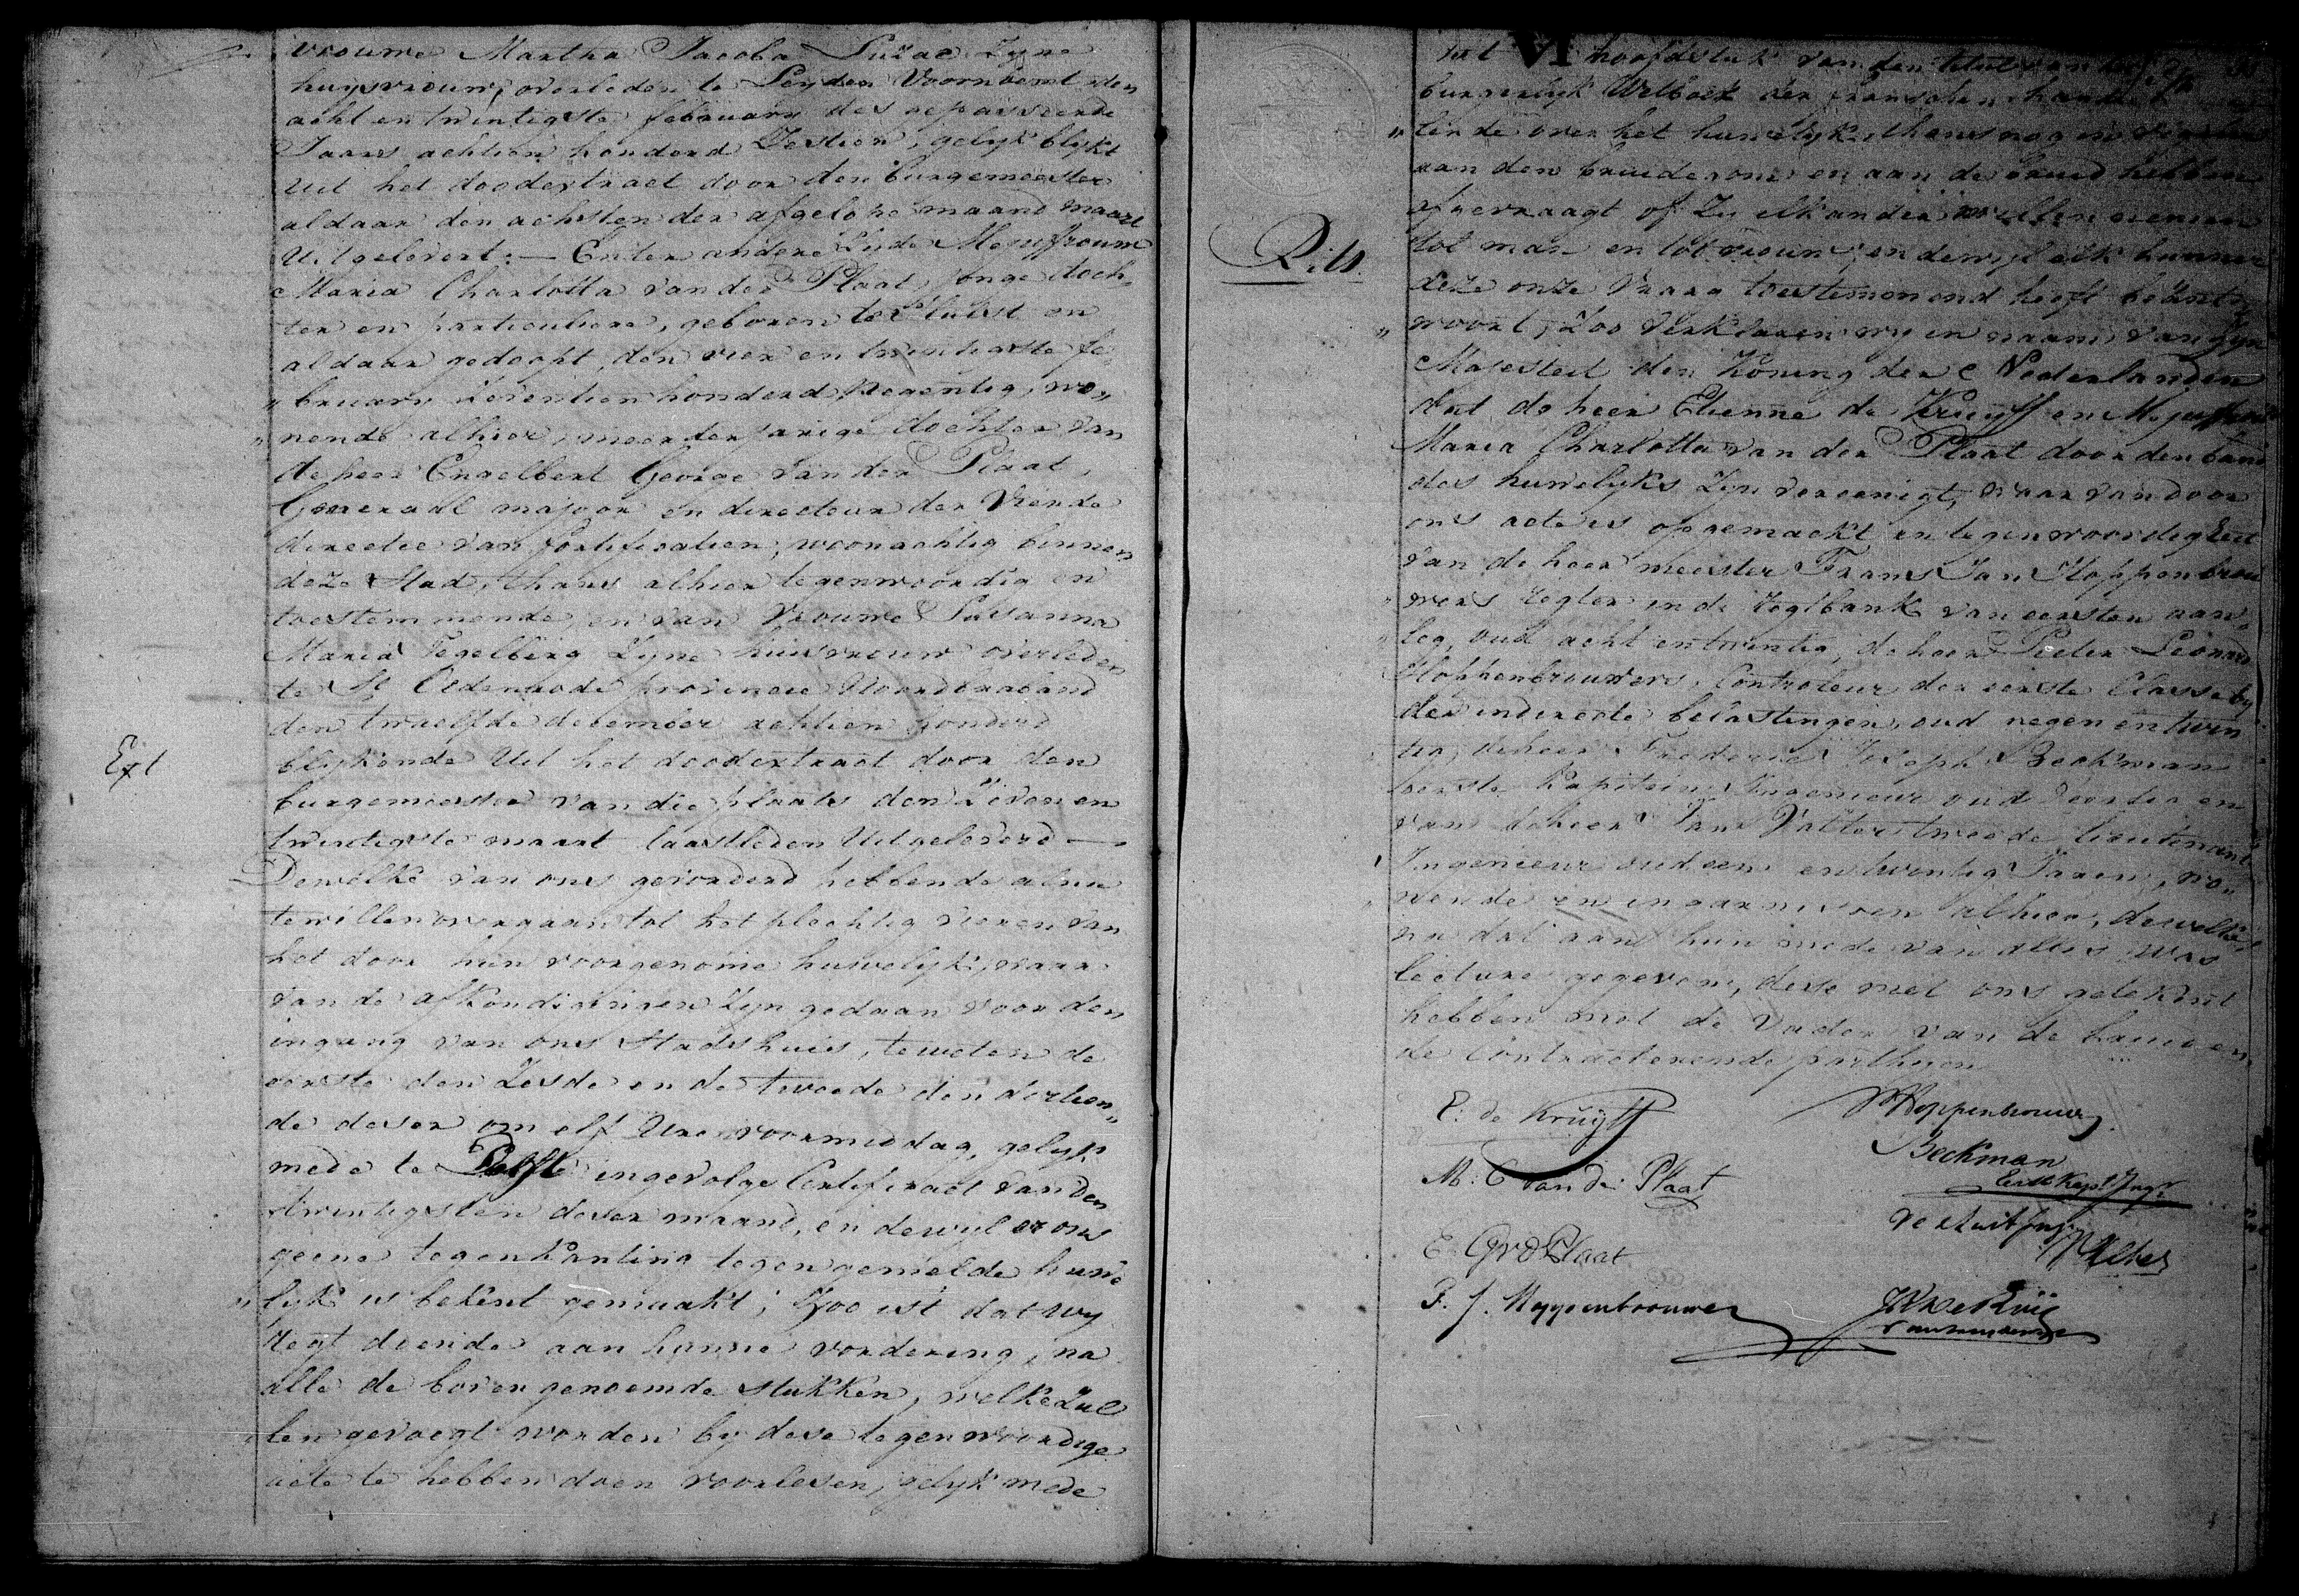 vrouwe Martha Jacoba Luzac Zyne
huysvrouw, overleden te Leyden Voornoemt den
acht en twintigste february des gepasseerde
Jaars achtien honderd Zestien, gelyk blykt
Uit het doodextract door den burgemeester
aldaar den achsten der afgelope maand maart
Uitgelevert. — Enter andere Zyde Mejuffrouw
Maria Charlotta van der Plaat, Jonge doch„
ter en particuliere, geboren te Sluist en
aldaar gedoopt, den vier en twintigste fe„
„bruary Zeventien honderd Negentig, wo„
„nende alhier, meerderjarige dochter van
de heer Engelbert George van der Plaat,
Generaal majoor en directeur der Vierde
directie van fortificatien, woonachtig binnen
deze Stad, thans alhier tegenwoordig en
toestemmende, en van Vrouwe Susanna
Maria Tegelberg Zyne huisvrouw overleden
te St Oedenrode provincie Noordbraband
den twaelfde december achtien honderd
Ext
blykende Uit het doodextract door den
burgemeester van die plaats den Zeven en
twintigste maart laastleden Uitgeleverd —
Dewelke van ons gevorderd hebbende alsnu
te willen overgaan tot het plechtig vieren van
het door hun voorgenome huwelyk, waar
van de afkondigingen Zyn gedaan voor den
ingang van ons Stadshuis, te weten de
eerste den Zesde en de tweede den dertien„
de deser om elf Ure voormiddag, gelyk
mede te Delft ingevolge Certificaat van den
twintigsten deser maand, en dewyl er ons
geene tegenkanting tegen gemelde huwe
„lyk is bekent gemaakt; Zoo ist dat wy
regt doende aan hunne vordering, na
alle de boven genoemde stukken, welke Zul
„len gevoegt worden by dese tegenwoordige
acte te hebben doen voorlesen, gelyk mede
het VI hoofdstuk van den titul van het
burgerlyk Wetboek der franschen hande
„lende over het huwelyk thans nog in
aan den bruidegom en aan de bruid hebben
afgevraagt of Zy elkander willen nemen
Rits
tot man en tot vrouw, en dewyl elk hunner
deze onze Vraag toestemmend heeft beant
„woort, Zoo Verklaren wy in naam van Zyn
Majesteit den Koning der Nederlanden
dat de heer Etienne de Kruyff en Mejuffrouw
Maria Charlotta van der Plaat door den band
des huwelyks Zyn vereenigt, waar van door
ons acte is opgemaekt in tegenwoordigheit
van de heer meester Frans Jan Hoppenbrou
„wers regter in de regtbank van eersten aan„
„leg, oud acht en twintig, de heer Pieter Leonard
Hoppenbrouwers, Controleur der eerste Classe by
der indirecte belastingen, oud negen en twin
tig, de heer Frederic Joseph Beckman
eerste Kapitein Ingenieur oud veertig en
van de heer tweede lieutenant
Ingenieur oud een en twintig Jaren, wo„
„nende en in garnisoen alhier, dewelke
na dat aan hun mede van alles was
lecture gegeven, dese met ons getekent
hebben met de Vader van de bruid en
de Contracterende parthyen
E: de Kruyff
Hoppenbrouwers
Beckman
Eerste Kapt Ingr
M: C van der Plaat
2e Luit Ingr
E G v d Plaat
F. J. Hoppenbrouwer